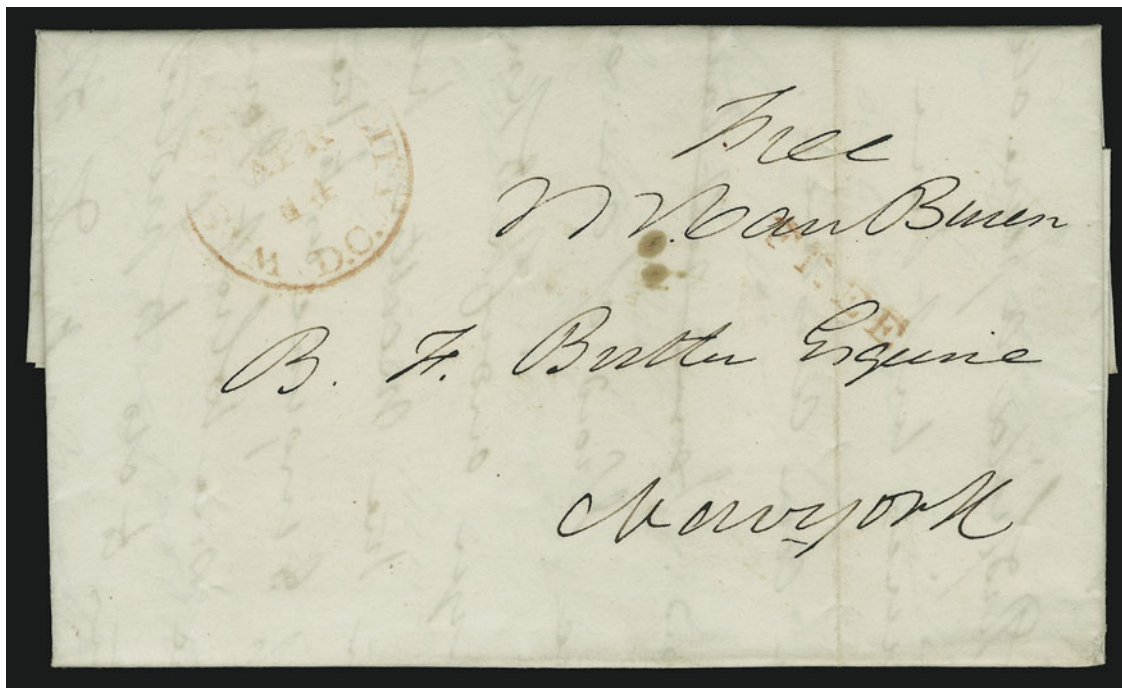 APR
D.C.
Free
M. Van Buren
B. F. Butler Esquire
New york